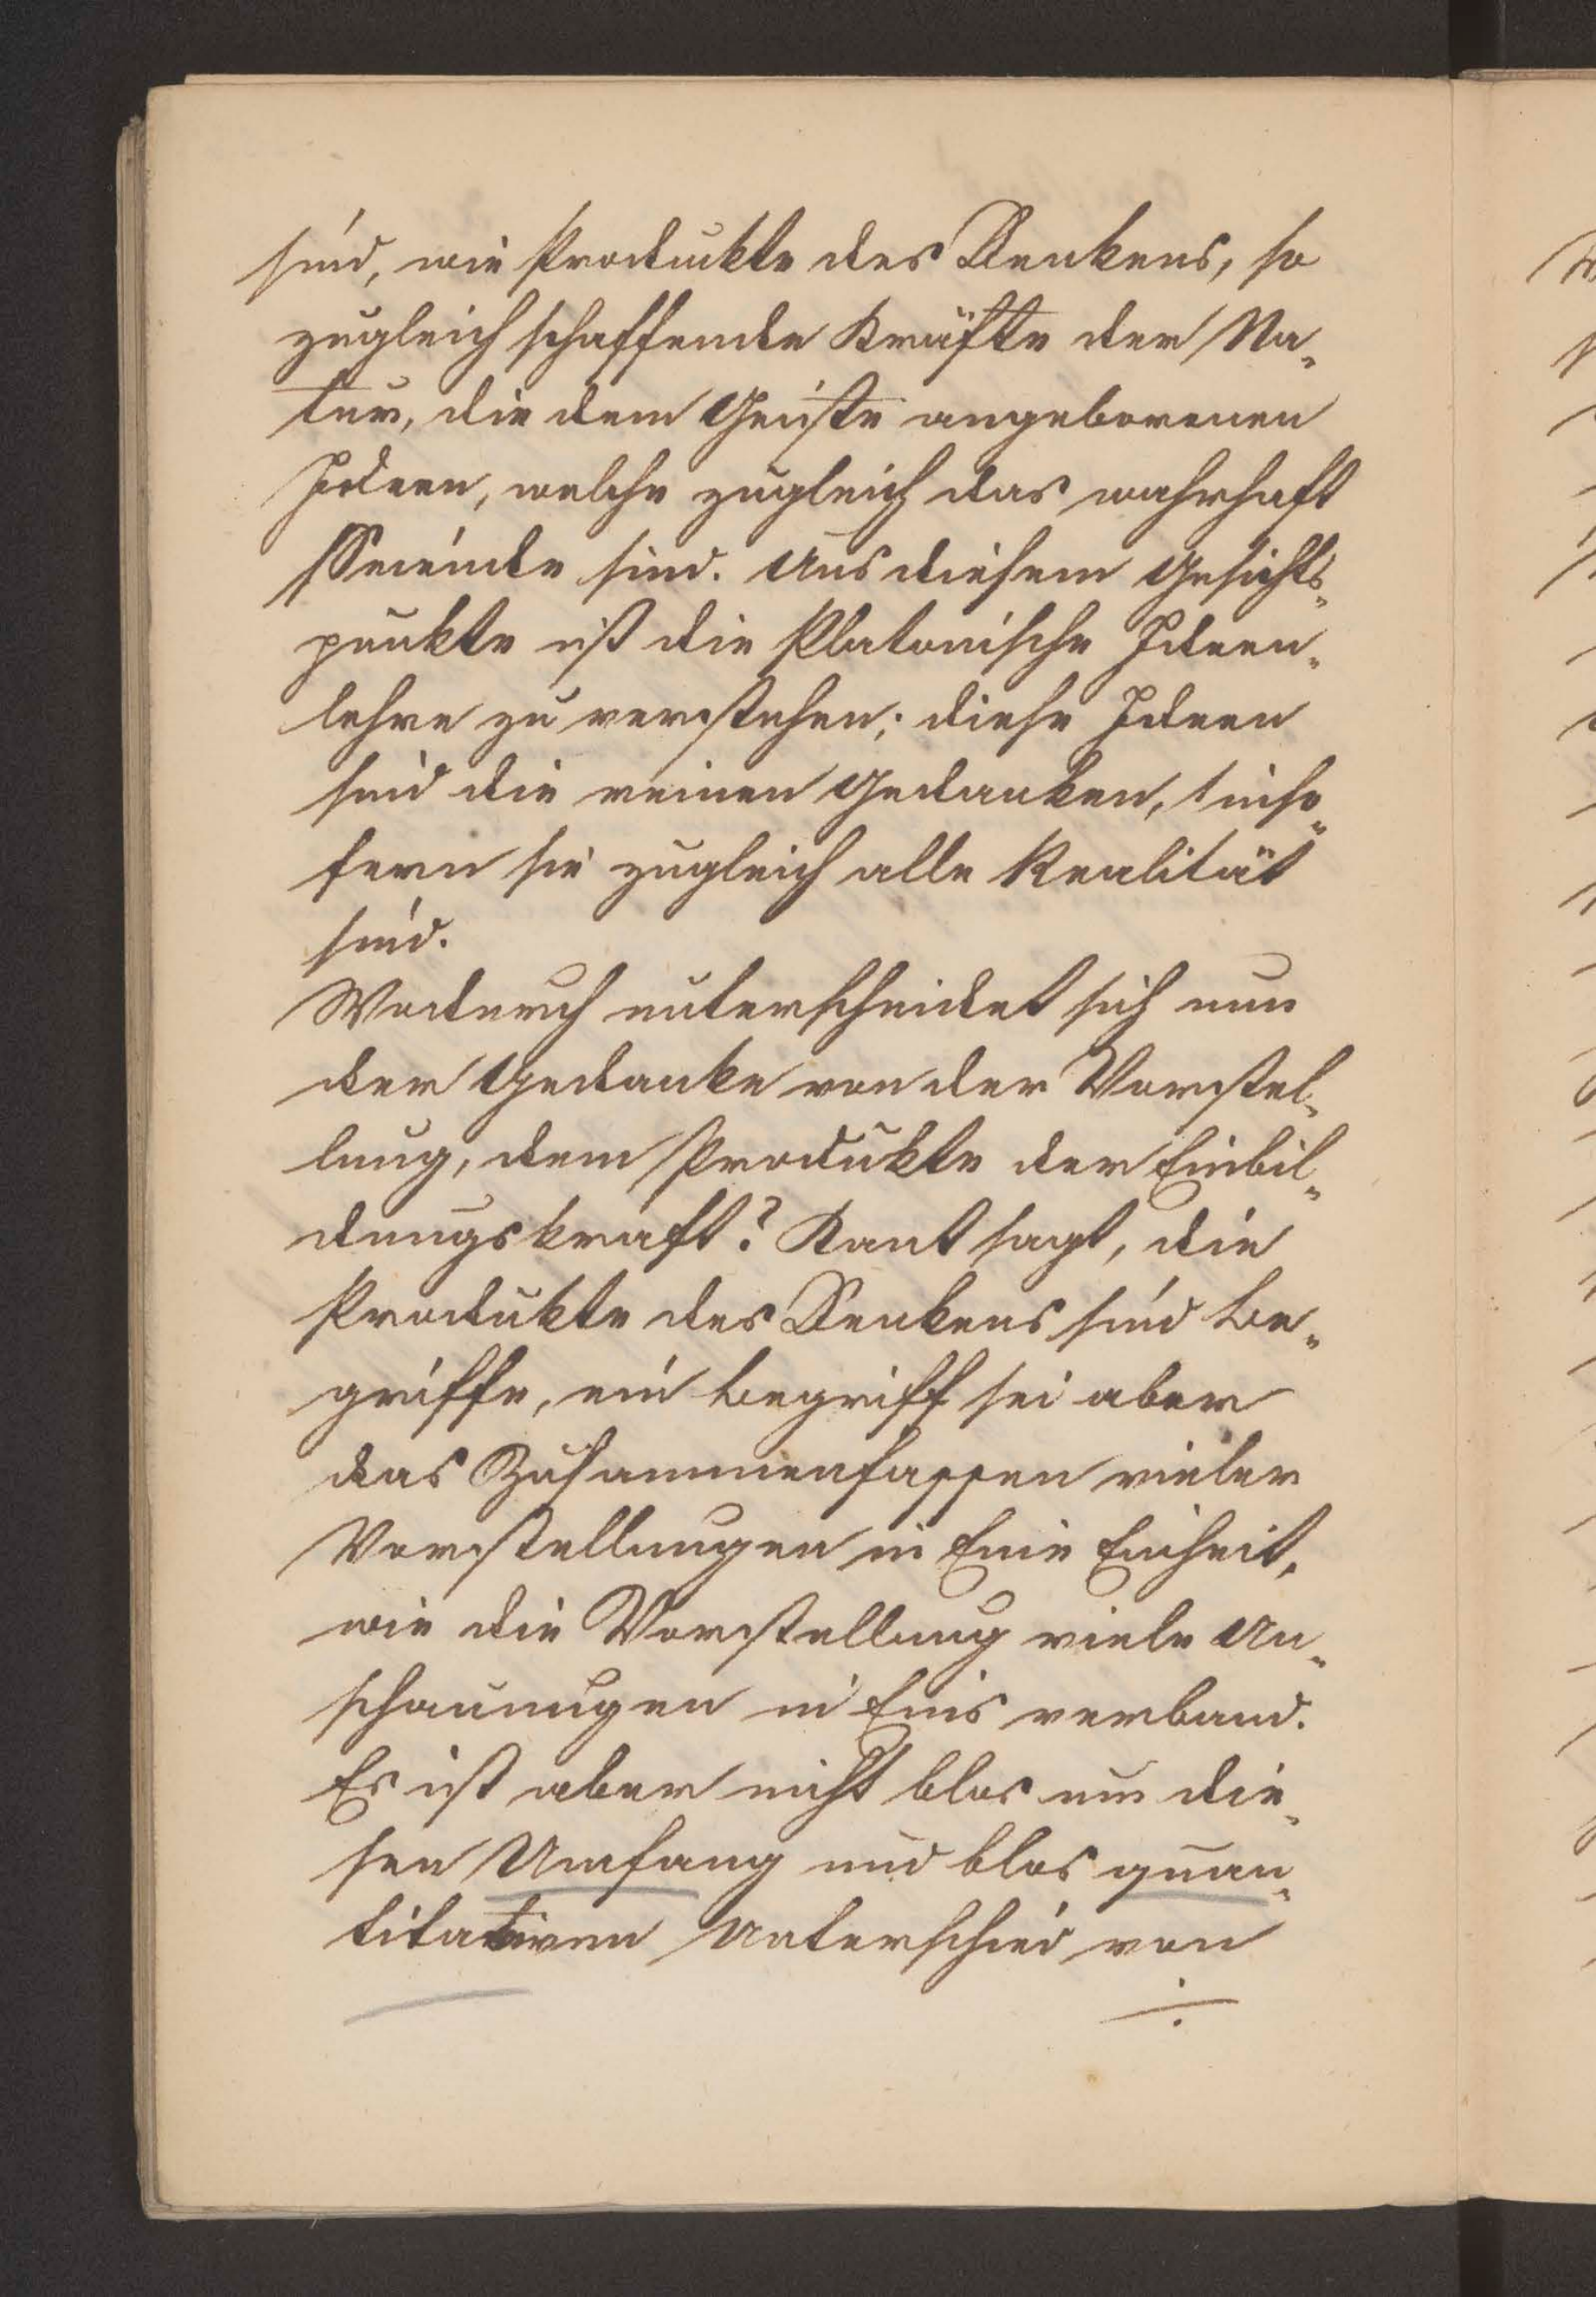 sind, wie Produckte des Denkens, so
zugleich schaffende Kräfte der Na-
tur, die dem Geiste angeborenen
Ideen, welche zugleich das wahrhaft
Seiende sind. Aus diesem Gesichts-
punkte ist die Platonische Ideen-
lehre zu verstehen; diese Ideen
sind die reinen Gedanken, inso-
fern sie zugleich alle Realität
sind.
Wodurch unterscheidet sich nun
der Gedanke von der Vorstel-
lung, dem Produkte der Einbil-
dungskraft? Kant sagt, die
Produkte des Denkens sind Be-
griffe, ein Begriff sei aber
das Zusammenfassen vieler
Vorstellungen in Eine Einheit,
wie die Vorstellung viele An-
schauungen in Eins verband.
Es ist aber nicht blos um die-
sen Umfang und blos quan-
titativen Unterschied von